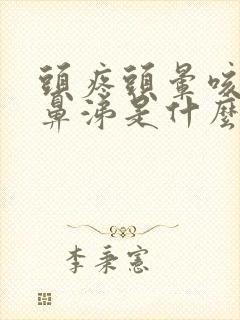 頭疼頭暈咳
鼻涕是什麼
李秉憲